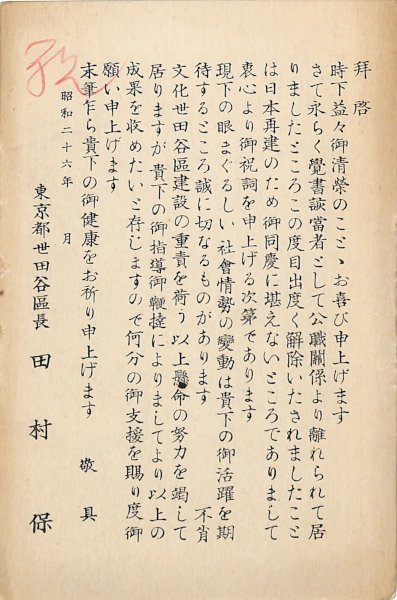 拝啓
時下益々御清榮のことゝお喜び申上げます
さて永らく覺書該當者として公職關係より離れられて居
りましたところこの度目出度く解除いたされましたこと
は日本再建のため御同慶に堪えないところでありまして
衷心より御祝詞を申上げる次第であります
現下の眼まぐるしい社會情勢の變動は貴下の御活躍を期
待するところ誠に切なるものがあります　不肖
文化世田谷區建設の重責を荷う以上懸命の努力を竭して
居りますが貴下の御指導御鞭撻によりましてより以上の
成果を收めたいと存じますので何分の御支援を賜り度御
願い申上げます
末筆乍ら貴下の御健康をお祈り申上げます　敬具
昭和二十六年　月
東京都世田谷區長　田村　保